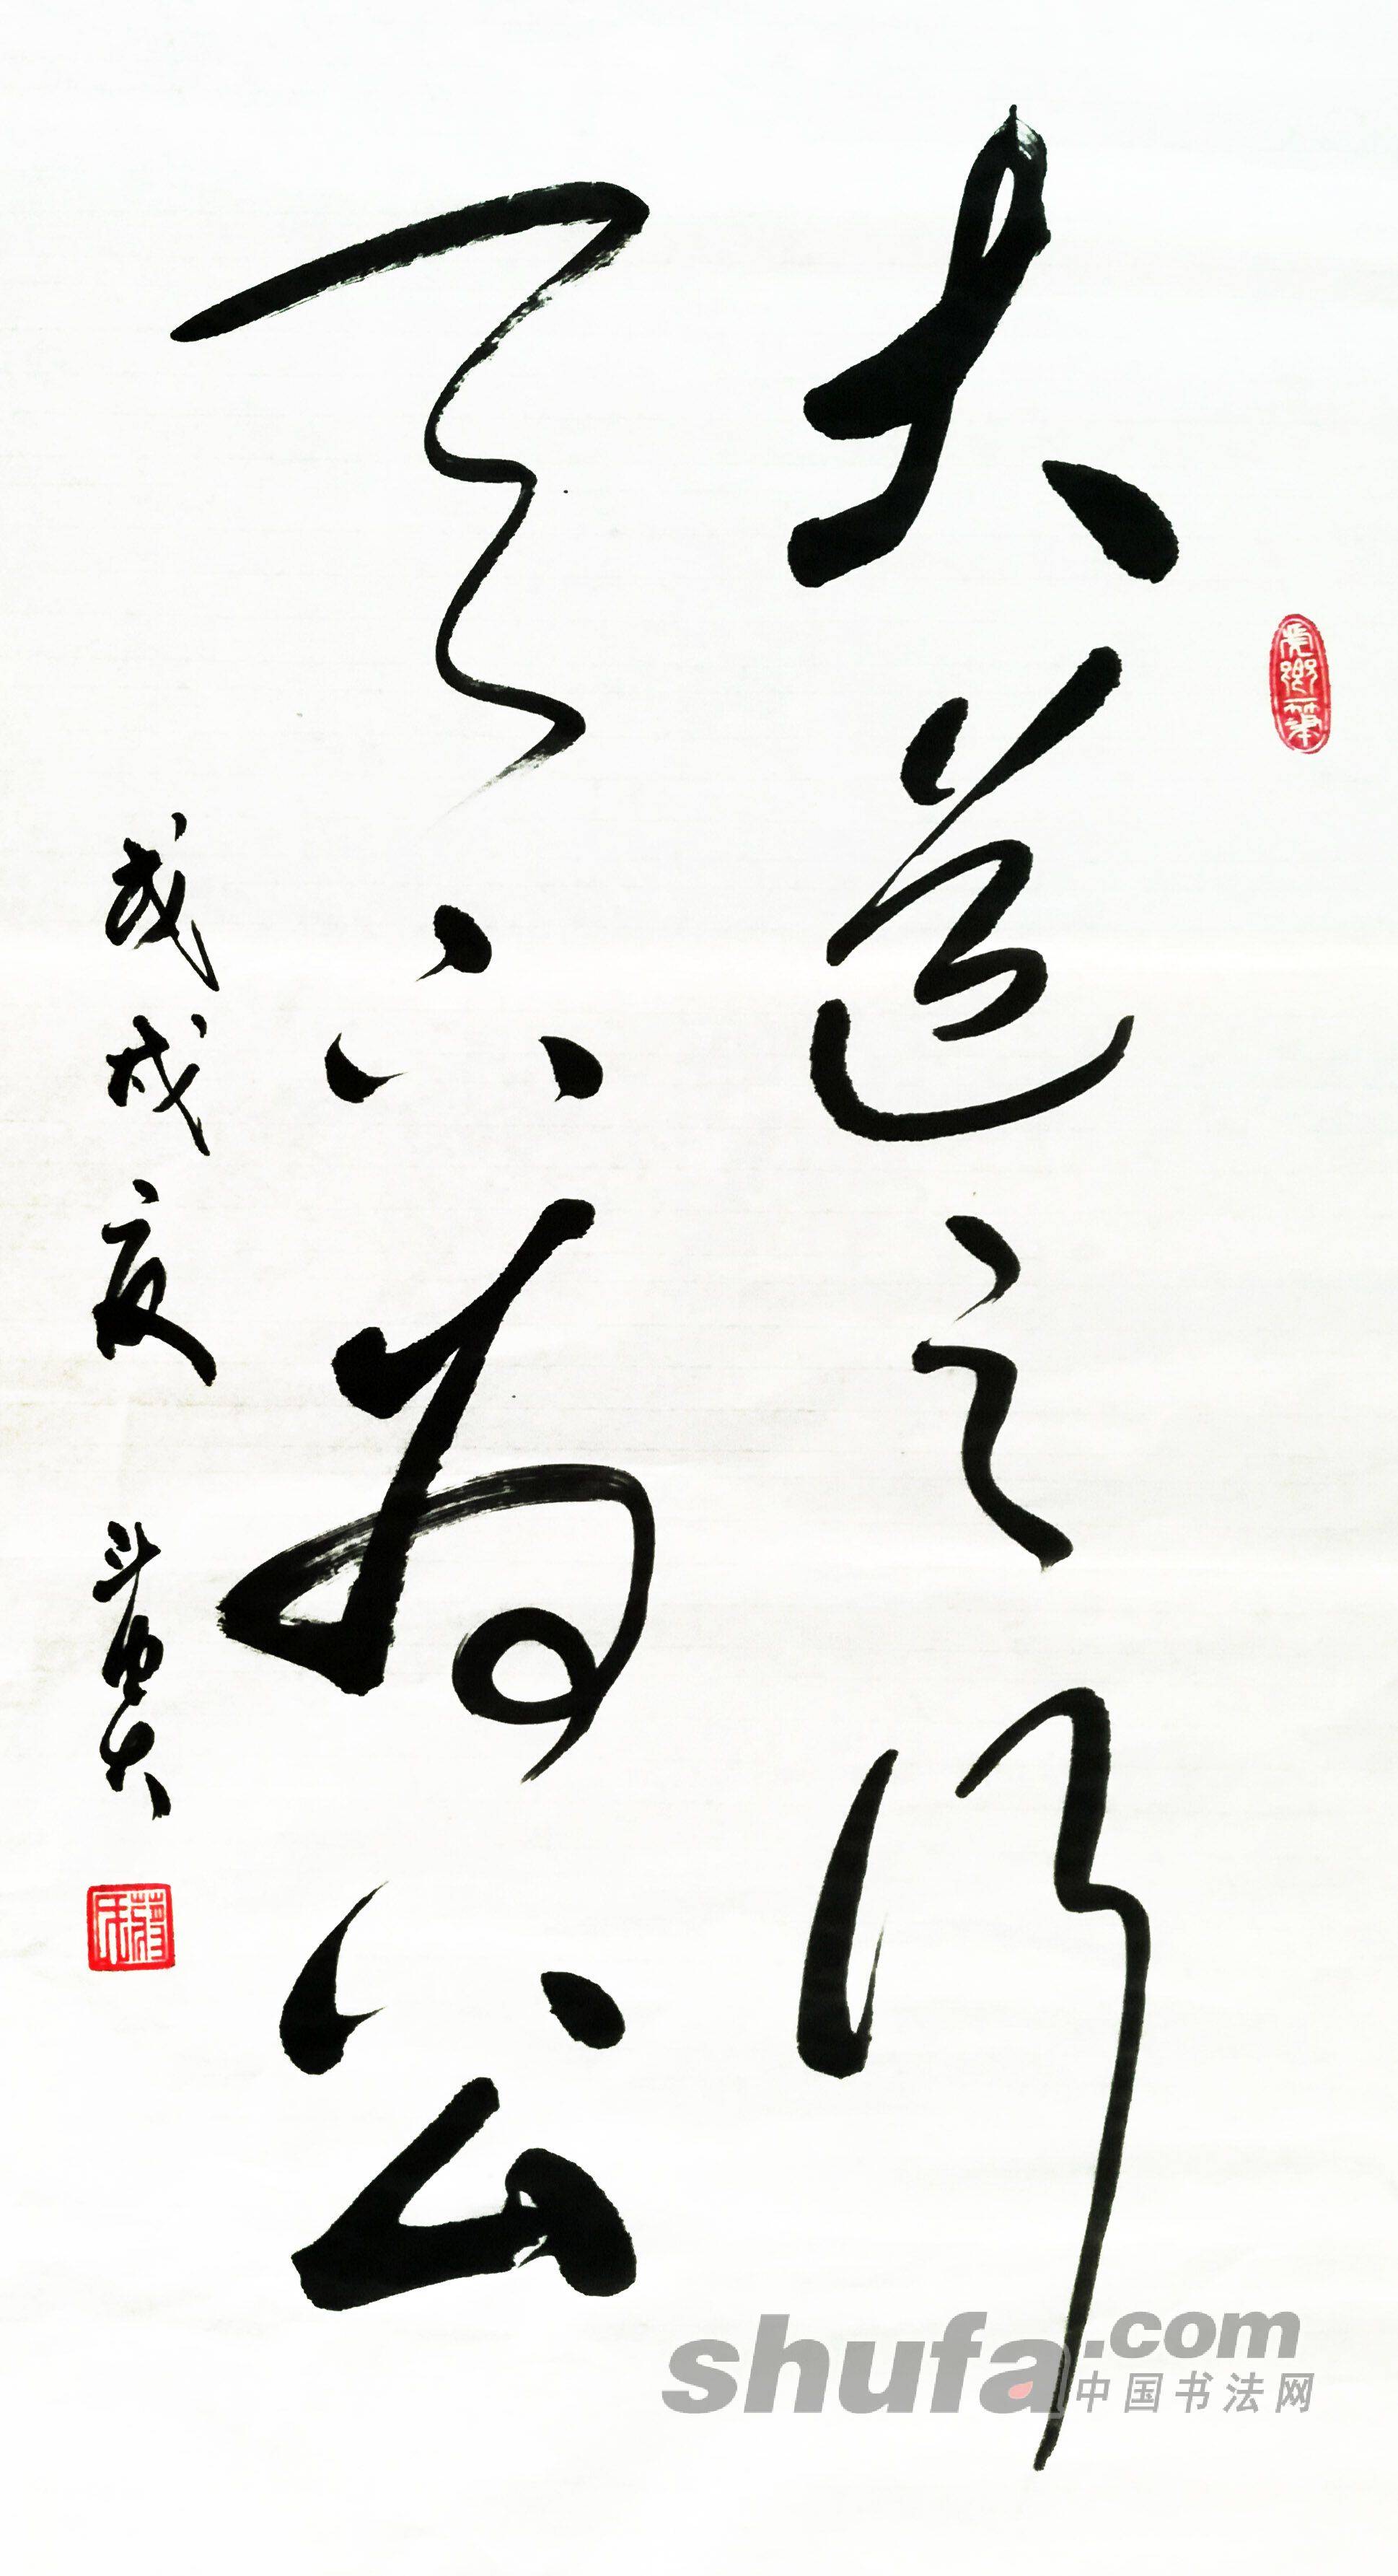 大道之行
天下为公
戊戌夏
shufa.com
中国书法网